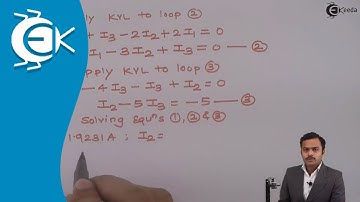 Ekeeda
ply KVL to loop ②
+ I₃ - 2I₂ + 2I₁ = 0
I₁ - 3I₂ + I₃ = 0 — ②
pply KVL to loop ③
- 4I₃ - I₃ + I₂ = 0
I₂ - 5I₃ = -5 — ③
Solving Equⁿs ①, ② & ③
1.9231A ; I₂ =